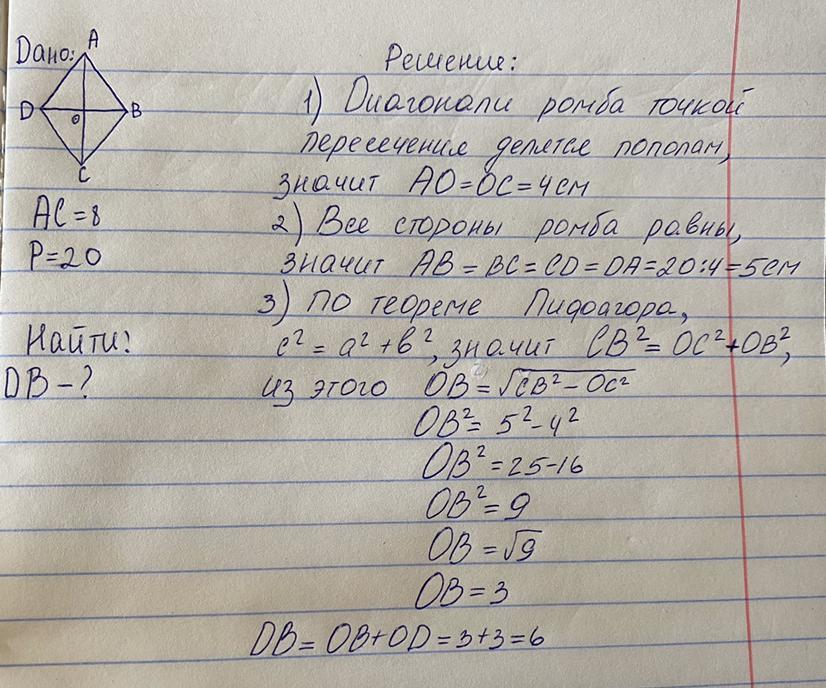 Дано:
A
D
B
O
C
AC=8
P=20
Найти:
DB-?
Решение:
1) Диагонали ромба точкой
пересечения делятся пополам,
значит AO=OC=4см
2) Все стороны ромба равны,
значит AB=BC=CD=DA=20:4=5см
3) По теореме Пифоагора,
c²=a²+b², значит CB²=OC²+OB²,
из этого OB=√CB²-OC²
OB²=5²-4²
OB²=25-16
OB²=9
OB=√9
OB=3
DB=OB+OD=3+3=6